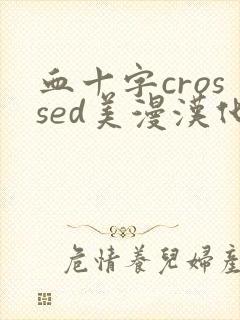 血十字cros
sed美漫漢化
危情養兒婦產